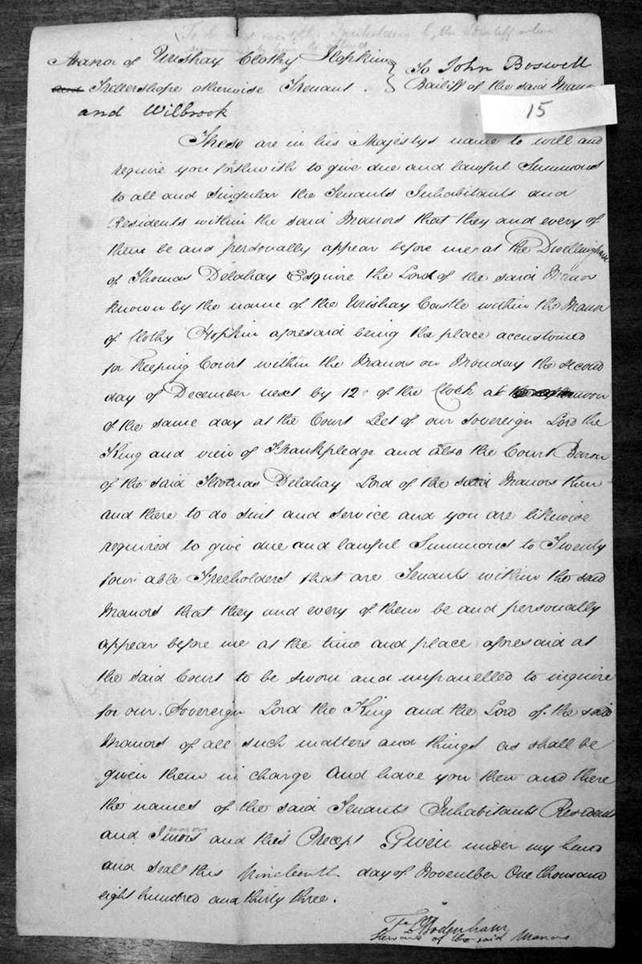 Manor of Urishay Clothy Hopkins } To John Boswell
and Trellershope otherwise Trenant. } Bailiff of the said Manors
and Wilbrook
15
These are in his Majestys name to will and
require you forthwith to give due and lawful Summons
to all and singular the Tenants Inhabitants and
Residents within the said Manors that they and every of
them be and personally appear before me at the Dwellinghouse
of Thomas Delahay Esquire the Lord of the said Manors
known by the name of the Urishay Castle within the Manor
of Clothy Hopkin aforesaid being the place accustomed
for keeping Court within the Manors on Monday the second
day of December next by 12 of the Clock at noon
of the same day at the Court Leet of our Sovereign Lord the
King and view of Frankpledge and also the Court Baron
of the said Thomas Delahay Lord of the said Manors then
and there to do suit and service and you are likewise
required to give due and lawful Summons to Twenty
four able Freeholders that are Tenants within the said
Manors that they and every of them be and personally
appear before me at the time and place aforesaid at
the said Court to be sworn and impanelled to inquire
for our Sovereign Lord the King and the Lord of the said
Manors of all such matters and things as shall be
given them in charge And have you then and there
the names of the said Tenants Inhabitants Residents
and Jurors and this Precept Given under my hand
and seal this Nineteenth day of November One thousand
eight hundred and thirty three.
Bodenham
Steward of the said Manors